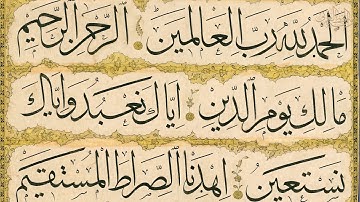 الحمد لله رب العالمين الرحمن الرحيم
مالك يوم الدين اياك نعبد واياك
نستعين اهدنا الصراط المستقيم